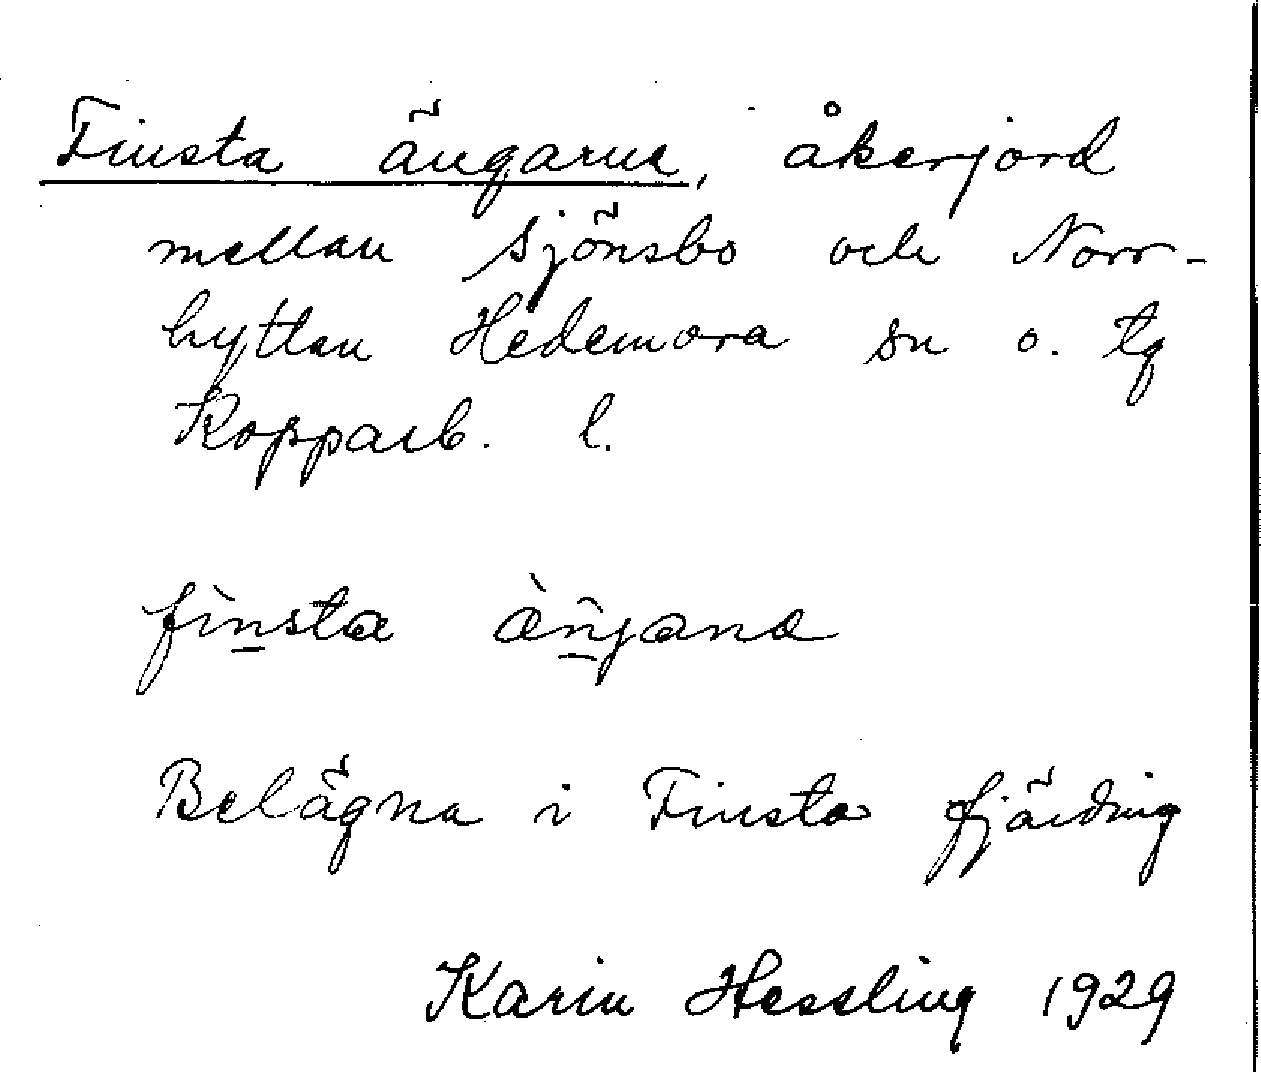 Finsta ängarna, åkerjord
mellan Sjönsbo och Norr-
hyttan Hedemora sn o. tg
Kopparb. l.
fìnsta
Belägna i Finsta fjärding
Karin Hessling 1929